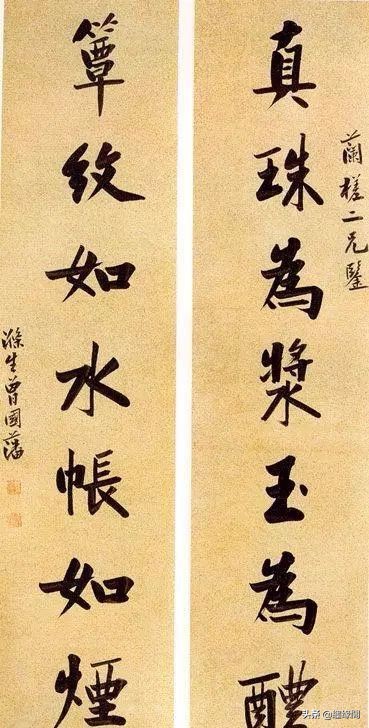 蘭槎二兄鑒
真珠為漿玉為醴
簟紋如水帳如煙
滌生曾國藩
头条